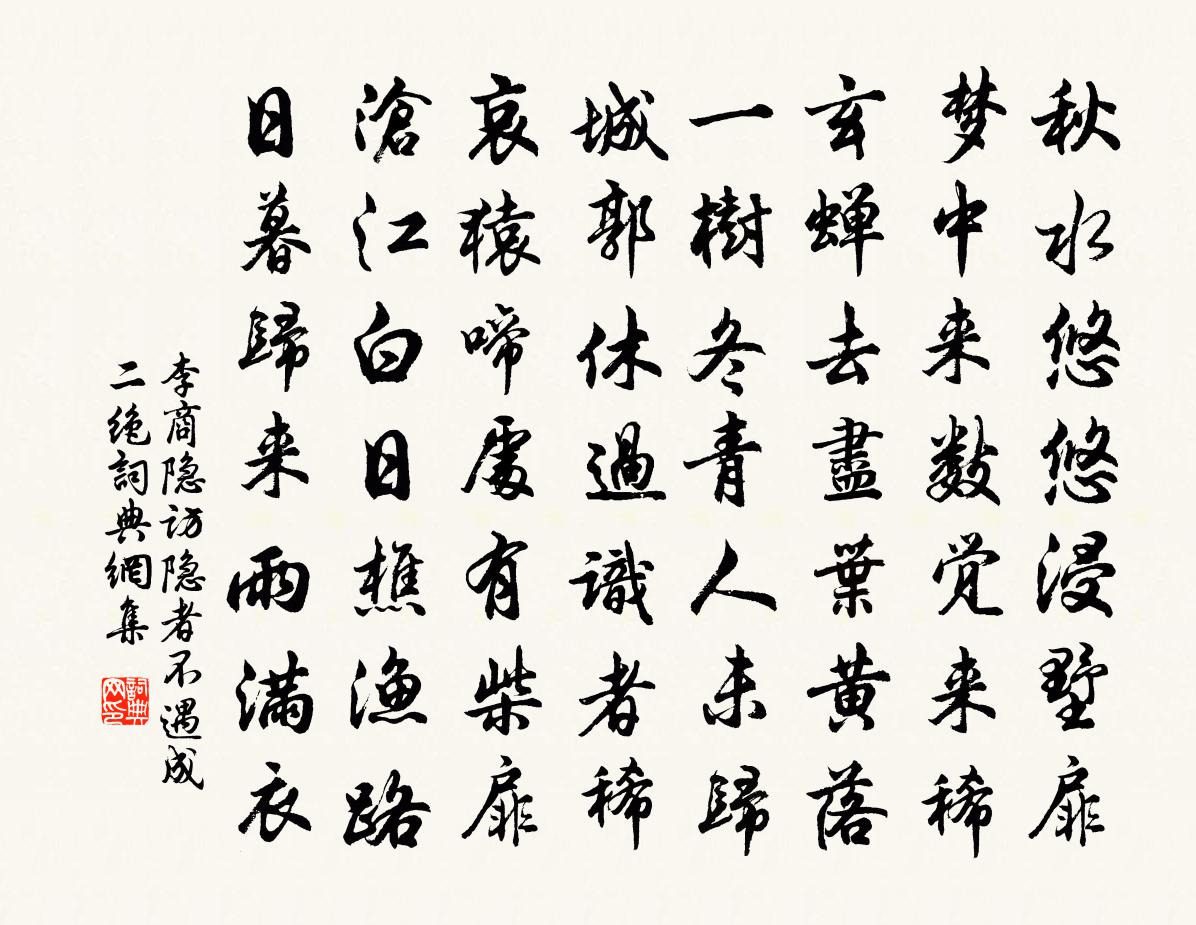 秋水悠悠浸墅扉
梦中来数觉来稀
玄蝉去盡葉黃落
一樹冬青人未歸
城郭休過識者稀
哀猿啼處有柴扉
滄江白日樵漁路
日暮歸来雨满衣
李商隐访隐者不遇成
二绝詞典網集
詞典
网印